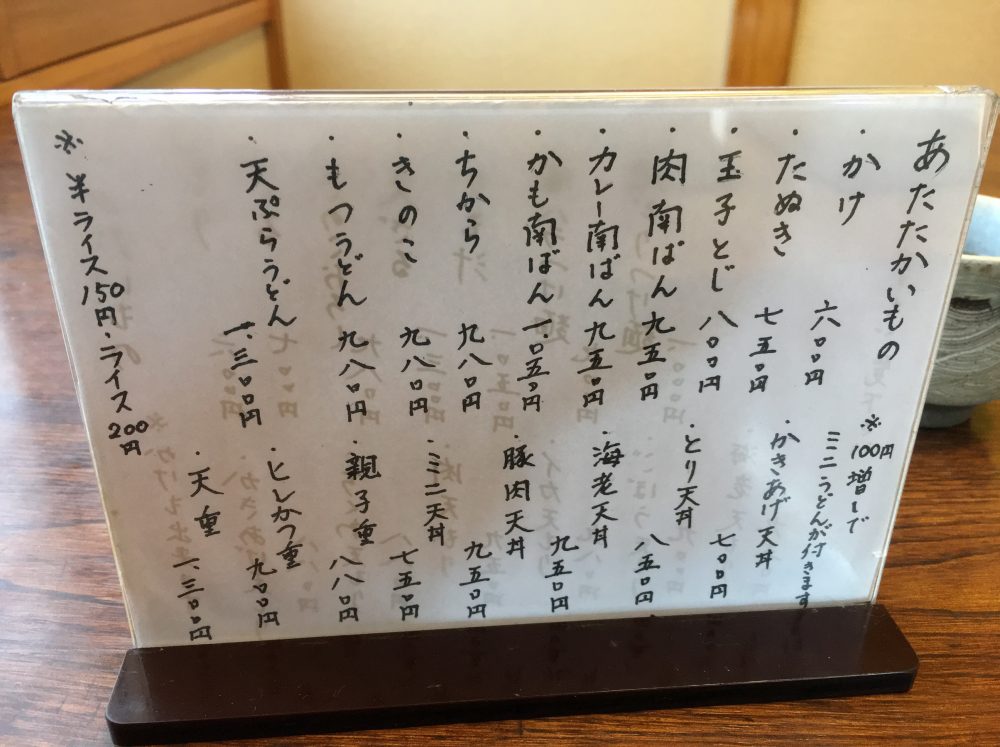 あたたかいもの
・かけ 六〇〇円
・たぬき 七五〇円
・玉子とじ 八〇〇円
・肉南ばん 九五〇円
・カレー南ばん 九五〇円
・かも南ばん 一、〇五〇円
・ちから 九八〇円
・きのこ 九八〇円
・もつうどん 九八〇円
・天ぷらうどん 一、三〇〇円
※100円増しで
ミニうどんが付きます
・かきあげ天丼 七〇〇円
・とり天丼 八五〇円
・海老天丼 九五〇円
・豚肉天丼 九五〇円
・ミニ天丼 七五〇円
・親子重 八八〇円
・ヒレかつ重 九〇〇円
・天重 一、三〇〇円
※半ライス150円・ライス200円